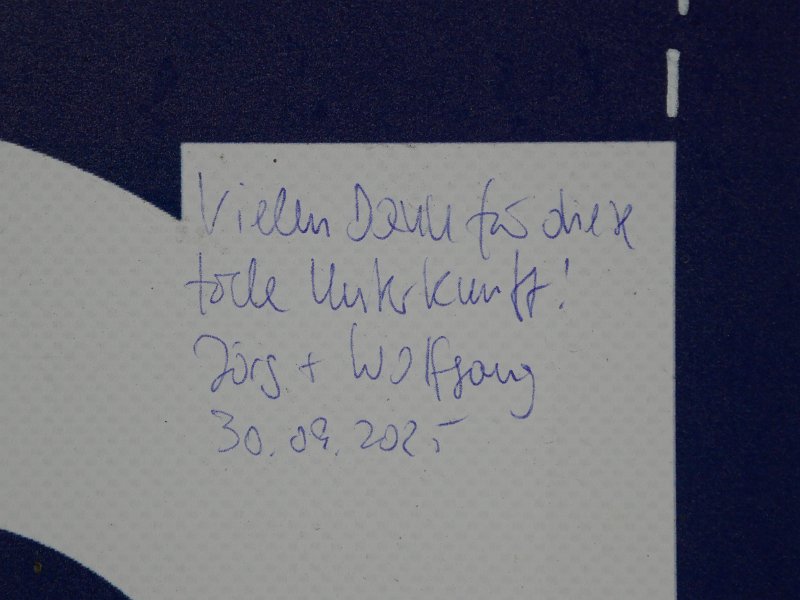 Vielen Dank für diese
tolle Unterkunft!
Jörg + Wolfgang
30.09.2025